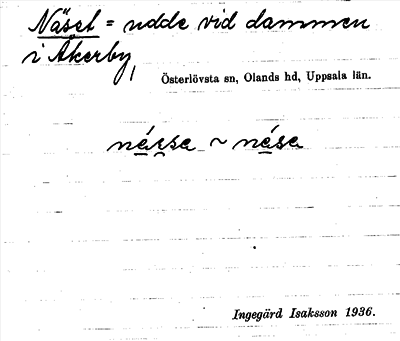 Näset = udde vid dammen
i Åkerby,
Österlövsta sn, Olands hd, Uppsala län.
nę́sa ~ nę́sa
Ingegärd Isaksson 1936.